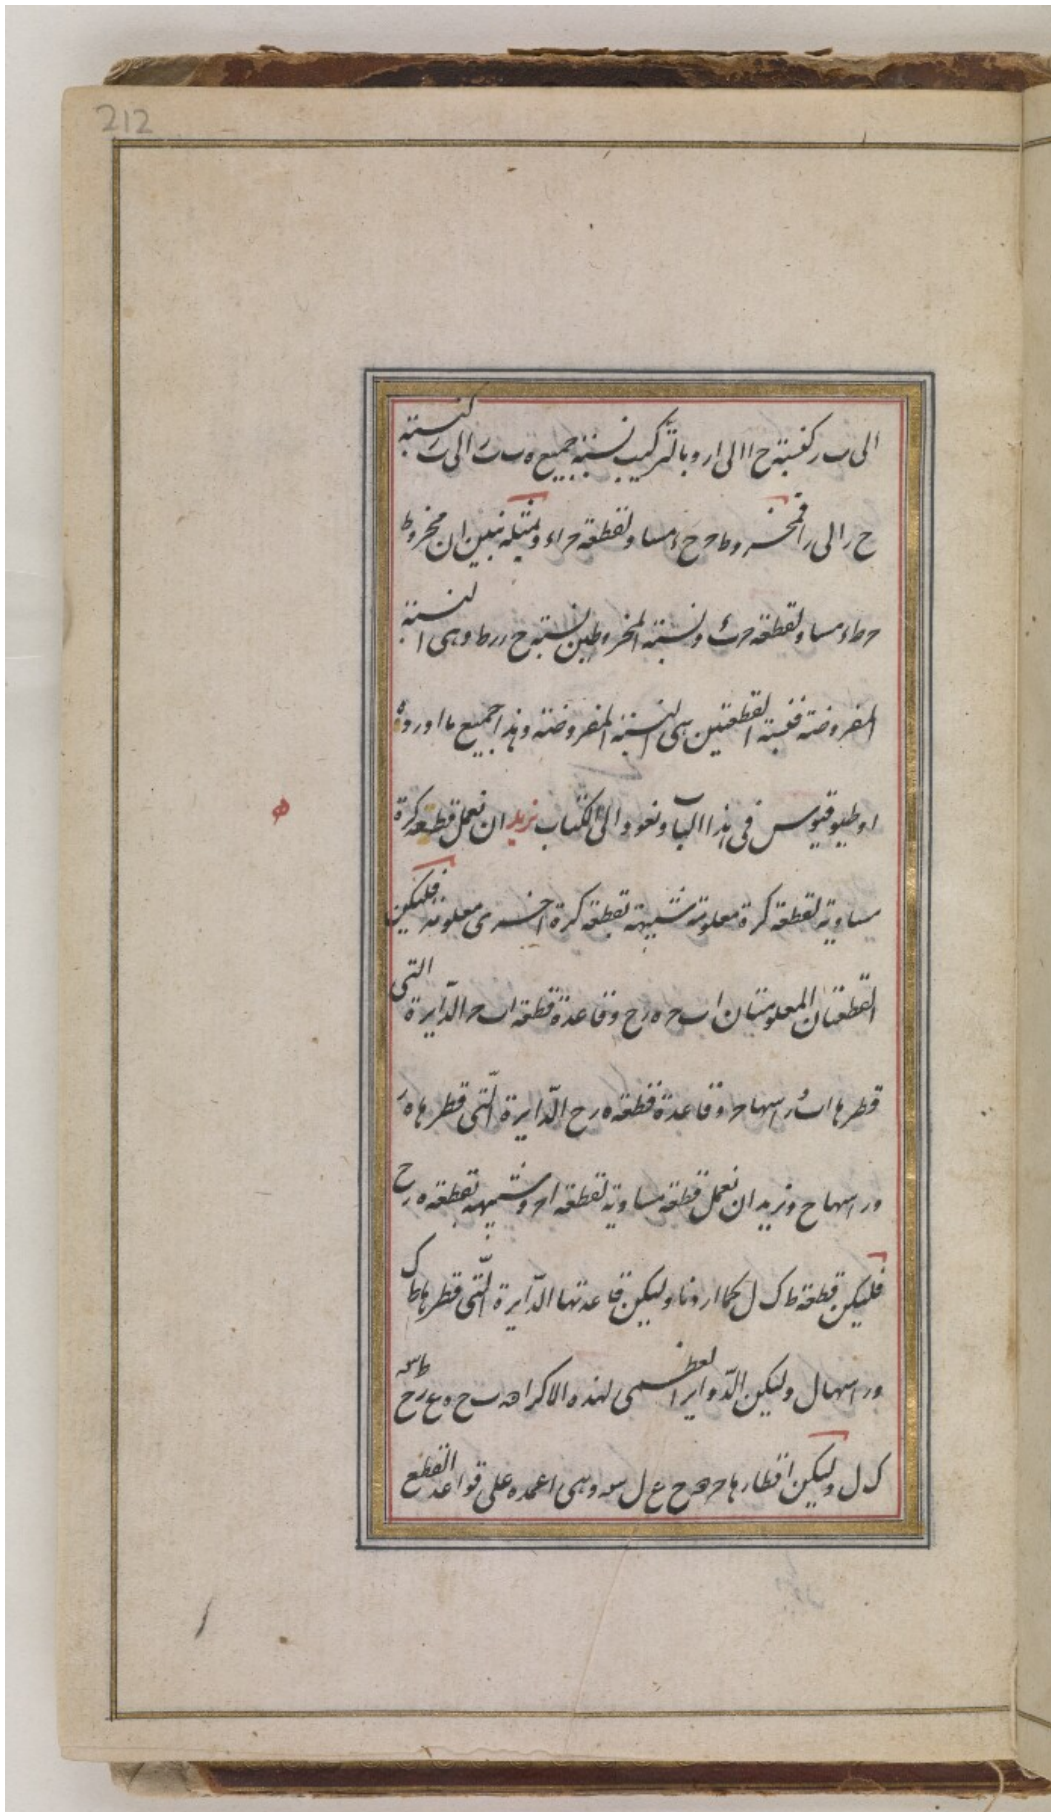 212
الى ب ر كنسبة ح ا الى ا ر و بالتركيب نسبة جميع ه ب ر الى ب ر كنسبة
ح ر الى ر ا فمخروط ح ح ء مساو لقطعة ح ا ء و بمثله نبين ان مخروط
ح ط ء مساو لقطعة ح ب ء و نسبة المخروطين نسبة ح ر ر ط و هى النسبة
المفروضة فنسبة القطعتين هى النسبة المفروضة و هذا جميع ما اورده
اوطيوقيوس فى هذا الباب و نعود الى الكتاب نريد ان نعمل قطعة كرة
مساوية لقطعة كرة معلومة شبيهة بقطعة كرة اخرى معلومة فليكن
القطعتان المعلومتان ا ب ح ه ر ح و قاعدة قطعة ا ب ح الدّايرة التى
قطرها ا ب و راسها ح و قاعدة قطعة ه ر ح الدّايرة الّتى قطرها ه ر
و راسها ح و نريد ان نعمل قطعة مساوية لقطعة ا ب ح و شبيهة بقطعة ه ر ح
فليكن قطعة ط ك ل كما اردنا و ليكن قاعدتها الدّايرة الّتى قطرها ط ك
و راسها ل و ليكن الدّواير العظمى لهذه الاكر ا هـ ب ح ه ع ر ح ط سه
ك ل و ليكن اقطارها ح هـ ح ع ل سه و هى اعمدة على قواعد القطع